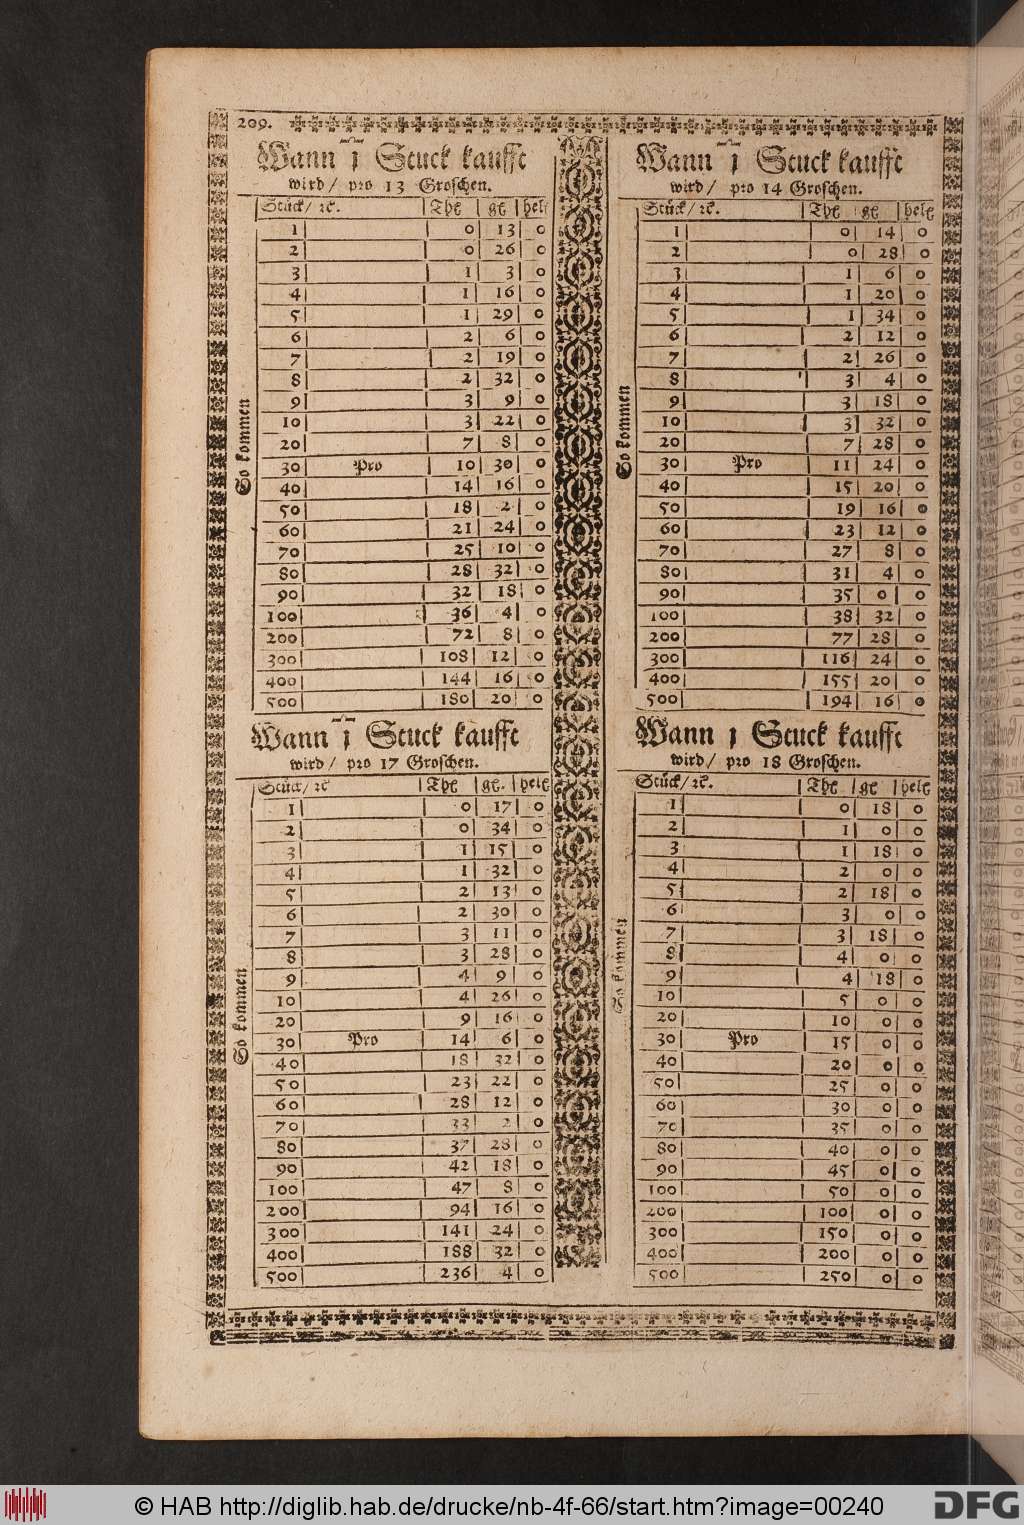 209.
Wann 1 Stuck kaufft
wird / pro 13 Groschen.
Stück / ꝛc. Thl gl hell
1 0 13 0
2 0 26 0
3 1 3 0
4 1 16 0
5 1 29 0
6 2 6 0
7 2 19 0
8 2 32 0
9 3 9 0
10 3 22 0
20 7 8 0
30 Pro 10 30 0
40 14 16 0
50 18 2 0
60 21 24 0
70 25 10 0
80 28 32 0
90 32 18 0
100 36 4 0
200 72 8 0
300 108 12 0
400 144 16 0
500 180 20 0
So kommen
Wann 1 Stuck kaufft
wird / pro 14 Groschen.
Stück / ꝛc. Thl gl hell
1 0 14 0
2 0 28 0
3 1 6 0
4 1 20 0
5 1 34 0
6 2 12 0
7 2 26 0
8 3 4 0
9 3 18 0
10 3 32 0
20 7 28 0
30 Pro 11 24 0
40 15 20 0
50 19 16 0
60 23 12 0
70 27 8 0
80 31 4 0
90 35 0 0
100 38 32 0
200 77 28 0
300 116 24 0
400 155 20 0
500 194 16 0
So kommen
Wann 1 Stuck kaufft
wird / pro 17 Groschen.
Stück / ꝛc Thl gl. hell
1 0 17 0
2 0 34 0
3 1 15 0
4 1 32 0
5 2 13 0
6 2 30 0
7 3 11 0
8 3 28 0
9 4 9 0
10 4 26 0
20 9 16 0
30 Pro 14 6 0
40 18 32 0
50 23 22 0
60 28 12 0
70 33 2 0
80 37 28 0
90 42 18 0
100 47 8 0
200 94 16 0
300 141 24 0
400 188 32 0
500 236 4 0
So kommen
Wann 1 Stuck kaufft
wird / pro 18 Groschen.
Stück / ꝛc. Thl gl hell
1 0 18 0
2 1 0 0
3 1 18 0
4 2 0 0
5 2 18 0
6 3 0 0
7 3 18 0
8 4 0 0
9 4 18 0
10 5 0 0
20 10 0 0
30 Pro 15 0 0
40 20 0 0
50 25 0 0
60 30 0 0
70 35 0 0
80 40 0 0
90 45 0 0
100 50 0 0
200 100 0 0
300 150 0 0
400 200 0 0
500 250 0 0
So kommen
© HAB http://diglib.hab.de/drucke/nb-4f-66/start.htm?image=00240
DFG